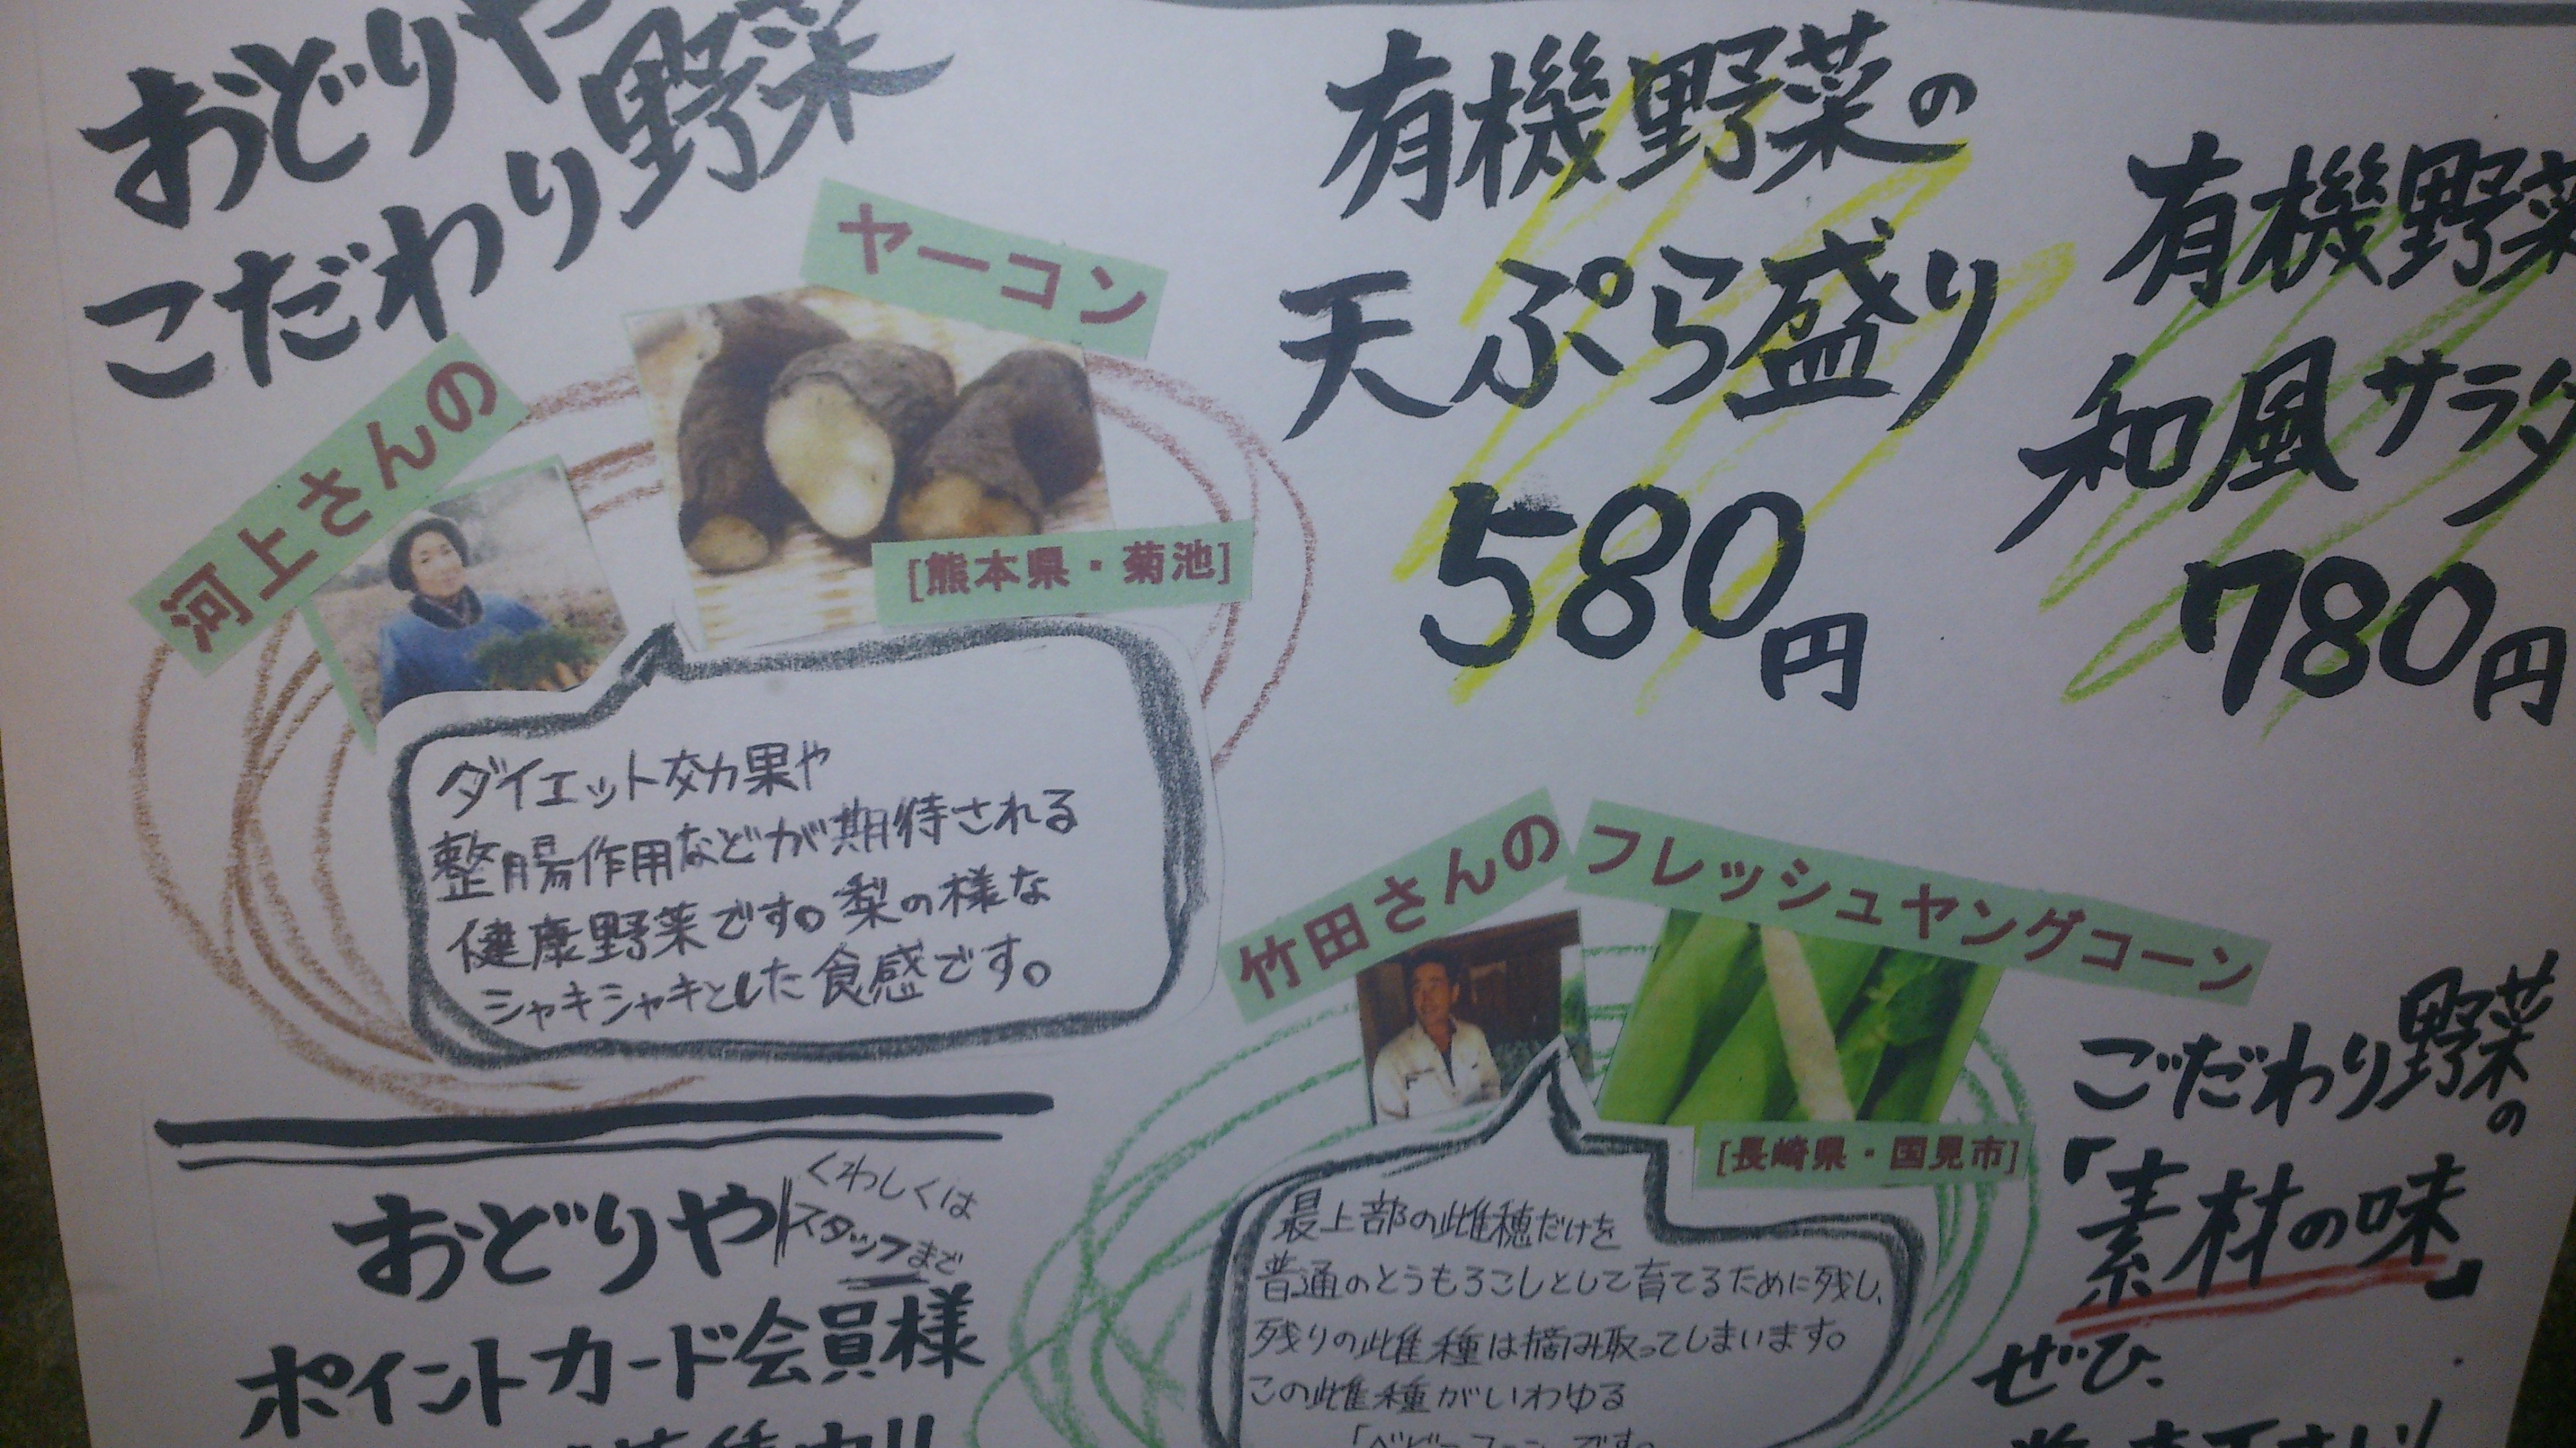 おどりや
こだわり野菜
河上さんの
ヤーコン
[熊本県・菊池]
ダイエット効果や
整腸作用などが期待される
健康野菜です。梨の様な
シャキシャキとした食感です。
有機野菜の
天ぷら盛り
580円
有機野菜
和風サラダ
780円
竹田さんの
フレッシュヤングコーン
[長崎県・国見市]
最上部の雌穂だけを
普通のとうもろこしとして育てるために残し、
残りの雌種は摘み取ってしまいます。
この雌種がいわゆる
「ベビーコーン」です。
おどりや
くわしくは
スタッフまで
ポイントカード会員様
こだわり野菜の
「素材の味」
ぜひ、